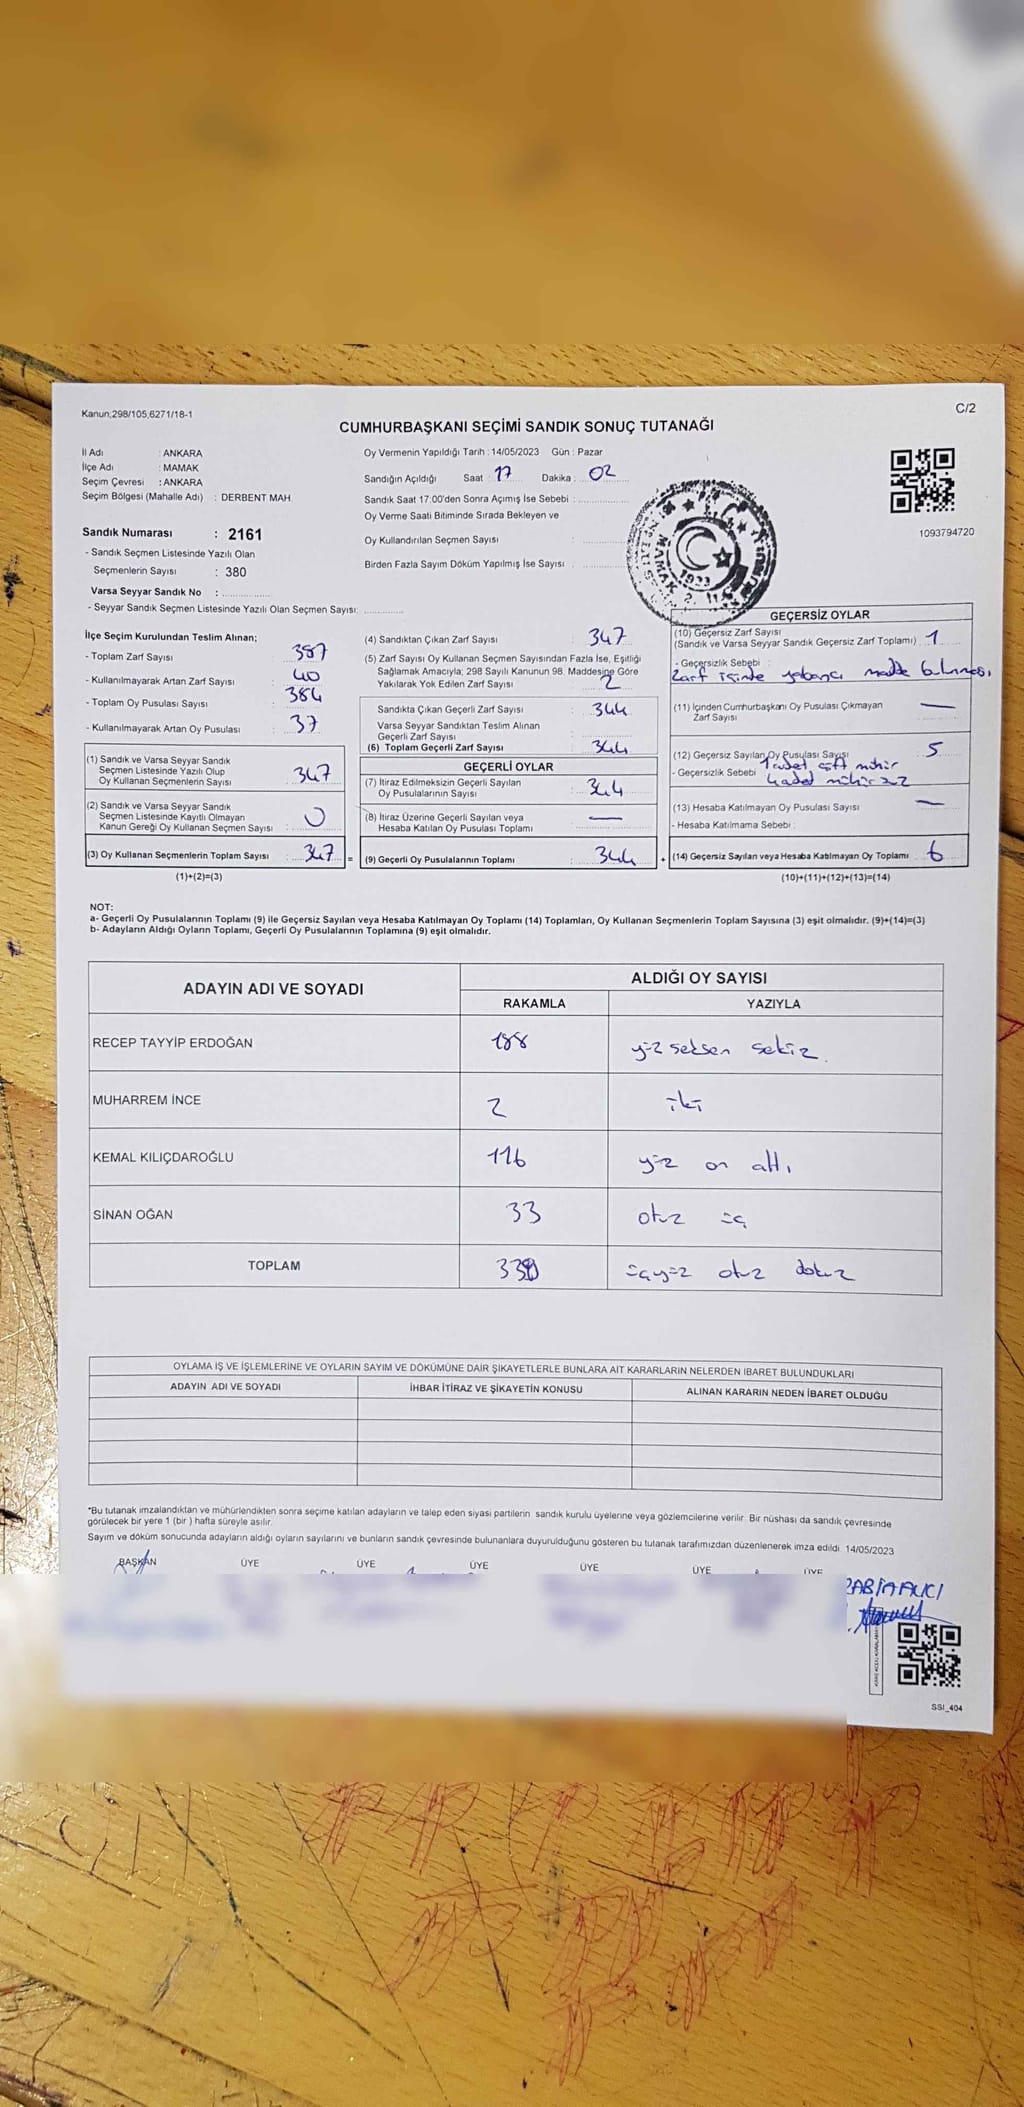 Kanun;298/105,6271/18-1
C/2
CUMHURBAŞKANI SEÇİMİ SANDIK SONUÇ TUTANAĞI
İl Adı : ANKARA
İlçe Adı : MAMAK
Seçim Çevresi : ANKARA
Seçim Bölgesi (Mahalle Adı) : DERBENT MAH.
Sandık Numarası : 2161
- Sandık Seçmen Listesinde Yazılı Olan
Seçmenlerin Sayısı : 380
Varsa Seyyar Sandık No :
- Seyyar Sandık Seçmen Listesinde Yazılı Olan Seçmen Sayısı:
Oy Vermenin Yapıldığı Tarih : 14/05/2023 Gün : Pazar
Sandığın Açıldığı Saat : 17 Dakika : 02
Sandık Saat 17:00'den Sonra Açımış İse Sebebi :
Oy Verme Saati Bitiminde Sırada Bekleyen ve
Oy Kullandırılan Seçmen Sayısı :
Birden Fazla Sayım Döküm Yapılmış İse Sayısı :
MAMAK 2. İLÇE
1093794720
İlçe Seçim Kurulundan Teslim Alınan;
- Toplam Zarf Sayısı : 387
- Kullanılmayarak Artan Zarf Sayısı : 40
- Toplam Oy Pusulası Sayısı : 384
- Kullanılmayarak Artan Oy Pusulası : 37
(1) Sandık ve Varsa Seyyar Sandık
Seçmen Listesinde Yazılı Olup
Oy Kullanan Seçmenlerin Sayısı : 347
(2) Sandık ve Varsa Seyyar Sandık
Seçmen Listesinde Kayıtlı Olmayan
Kanun Gereği Oy Kullanan Seçmen Sayısı : 0
(3) Oy Kullanan Seçmenlerin Toplam Sayısı : 347 =
(1)+(2)=(3)
(4) Sandıktan Çıkan Zarf Sayısı : 347
(5) Zarf Sayısı Oy Kullanan Seçmen Sayısından Fazla İse, Eşitliği
Sağlamak Amacıyla; 298 Sayılı Kanunun 98. Maddesine Göre
Yakılarak Yok Edilen Zarf Sayısı : 2
Sandıkta Çıkan Geçerli Zarf Sayısı : 344
Varsa Seyyar Sandıktan Teslim Alınan
Geçerli Zarf Sayısı :
(6) Toplam Geçerli Zarf Sayısı : 344
GEÇERLİ OYLAR
(7) İtiraz Edilmeksizin Geçerli Sayılan
Oy Pusulalarının Sayısı : 344
(8) İtiraz Üzerine Geçerli Sayılan veya
Hesaba Katılan Oy Pusulası Toplamı : —
(9) Geçerli Oy Pusulalarının Toplamı : 344 +
GEÇERSİZ OYLAR
(10) Geçersiz Zarf Sayısı
(Sandık ve Varsa Seyyar Sandık Geçersiz Zarf Toplamı) : 1
- Geçersizlik Sebebi :
Zarf içinde yabancı madde bulunması
(11) İçinden Cumhurbaşkanı Oy Pusulası Çıkmayan
Zarf Sayısı —
(12) Geçersiz Sayılan Oy Pusulası Sayısı 5
1 adet çift mühür
- Geçersizlik Sebebi :
(13) Hesaba Katılmayan Oy Pusulası Sayısı —
- Hesaba Katılmama Sebebi :
(14) Geçersiz Sayılan veya Hesaba Katılmayan Oy Toplamı : 6
(10)+(11)+(12)+(13)=(14)
NOT:
a- Geçerli Oy Pusulalarının Toplamı (9) ile Geçersiz Sayılan veya Hesaba Katılmayan Oy Toplamı (14) Toplamları, Oy Kullanan Seçmenlerin Toplam Sayısına (3) eşit olmalıdır. (9)+(14)=(3)
b- Adayların Aldığı Oyların Toplamı, Geçerli Oy Pusulalarının Toplamına (9) eşit olmalıdır.
ADAYIN ADI VE SOYADI
ALDIĞI OY SAYISI
RAKAMLA YAZIYLA
RECEP TAYYİP ERDOĞAN 188 yüz seksen sekiz
MUHARREM İNCE 2 iki
KEMAL KILIÇDAROĞLU 116 yüz on altı
SİNAN OĞAN 33 otuz üç
TOPLAM 339 üçyüz otuz dokuz
OYLAMA İŞ VE İŞLEMLERİNE VE OYLARIN SAYIM VE DÖKÜMÜNE DAİR ŞİKAYETLERLE BUNLARA AİT KARARLARIN NELERDEN İBARET BULUNDUKLARI
ADAYIN ADI VE SOYADI İHBAR İTİRAZ VE ŞİKAYETİN KONUSU ALINAN KARARIN NEDEN İBARET OLDUĞU
*Bu tutanak imzalandıktan ve mühürlendikten sonra seçime katılan adayların ve talep eden siyasi partilerin sandık kurulu üyelerine veya gözlemcilerine verilir. Bir nüshası da sandık çevresinde
görülecek bir yere 1 (bir ) hafta süreyle asılır.
Sayım ve döküm sonucunda adayların aldığı oyların sayılarını ve bunların sandık çevresinde bulunanlara duyurulduğunu gösteren bu tutanak tarafımızdan düzenlenerek imza edildi. 14/05/2023
BAŞKAN ÜYE ÜYE ÜYE ÜYE ÜYE ÜYE
SSI_404